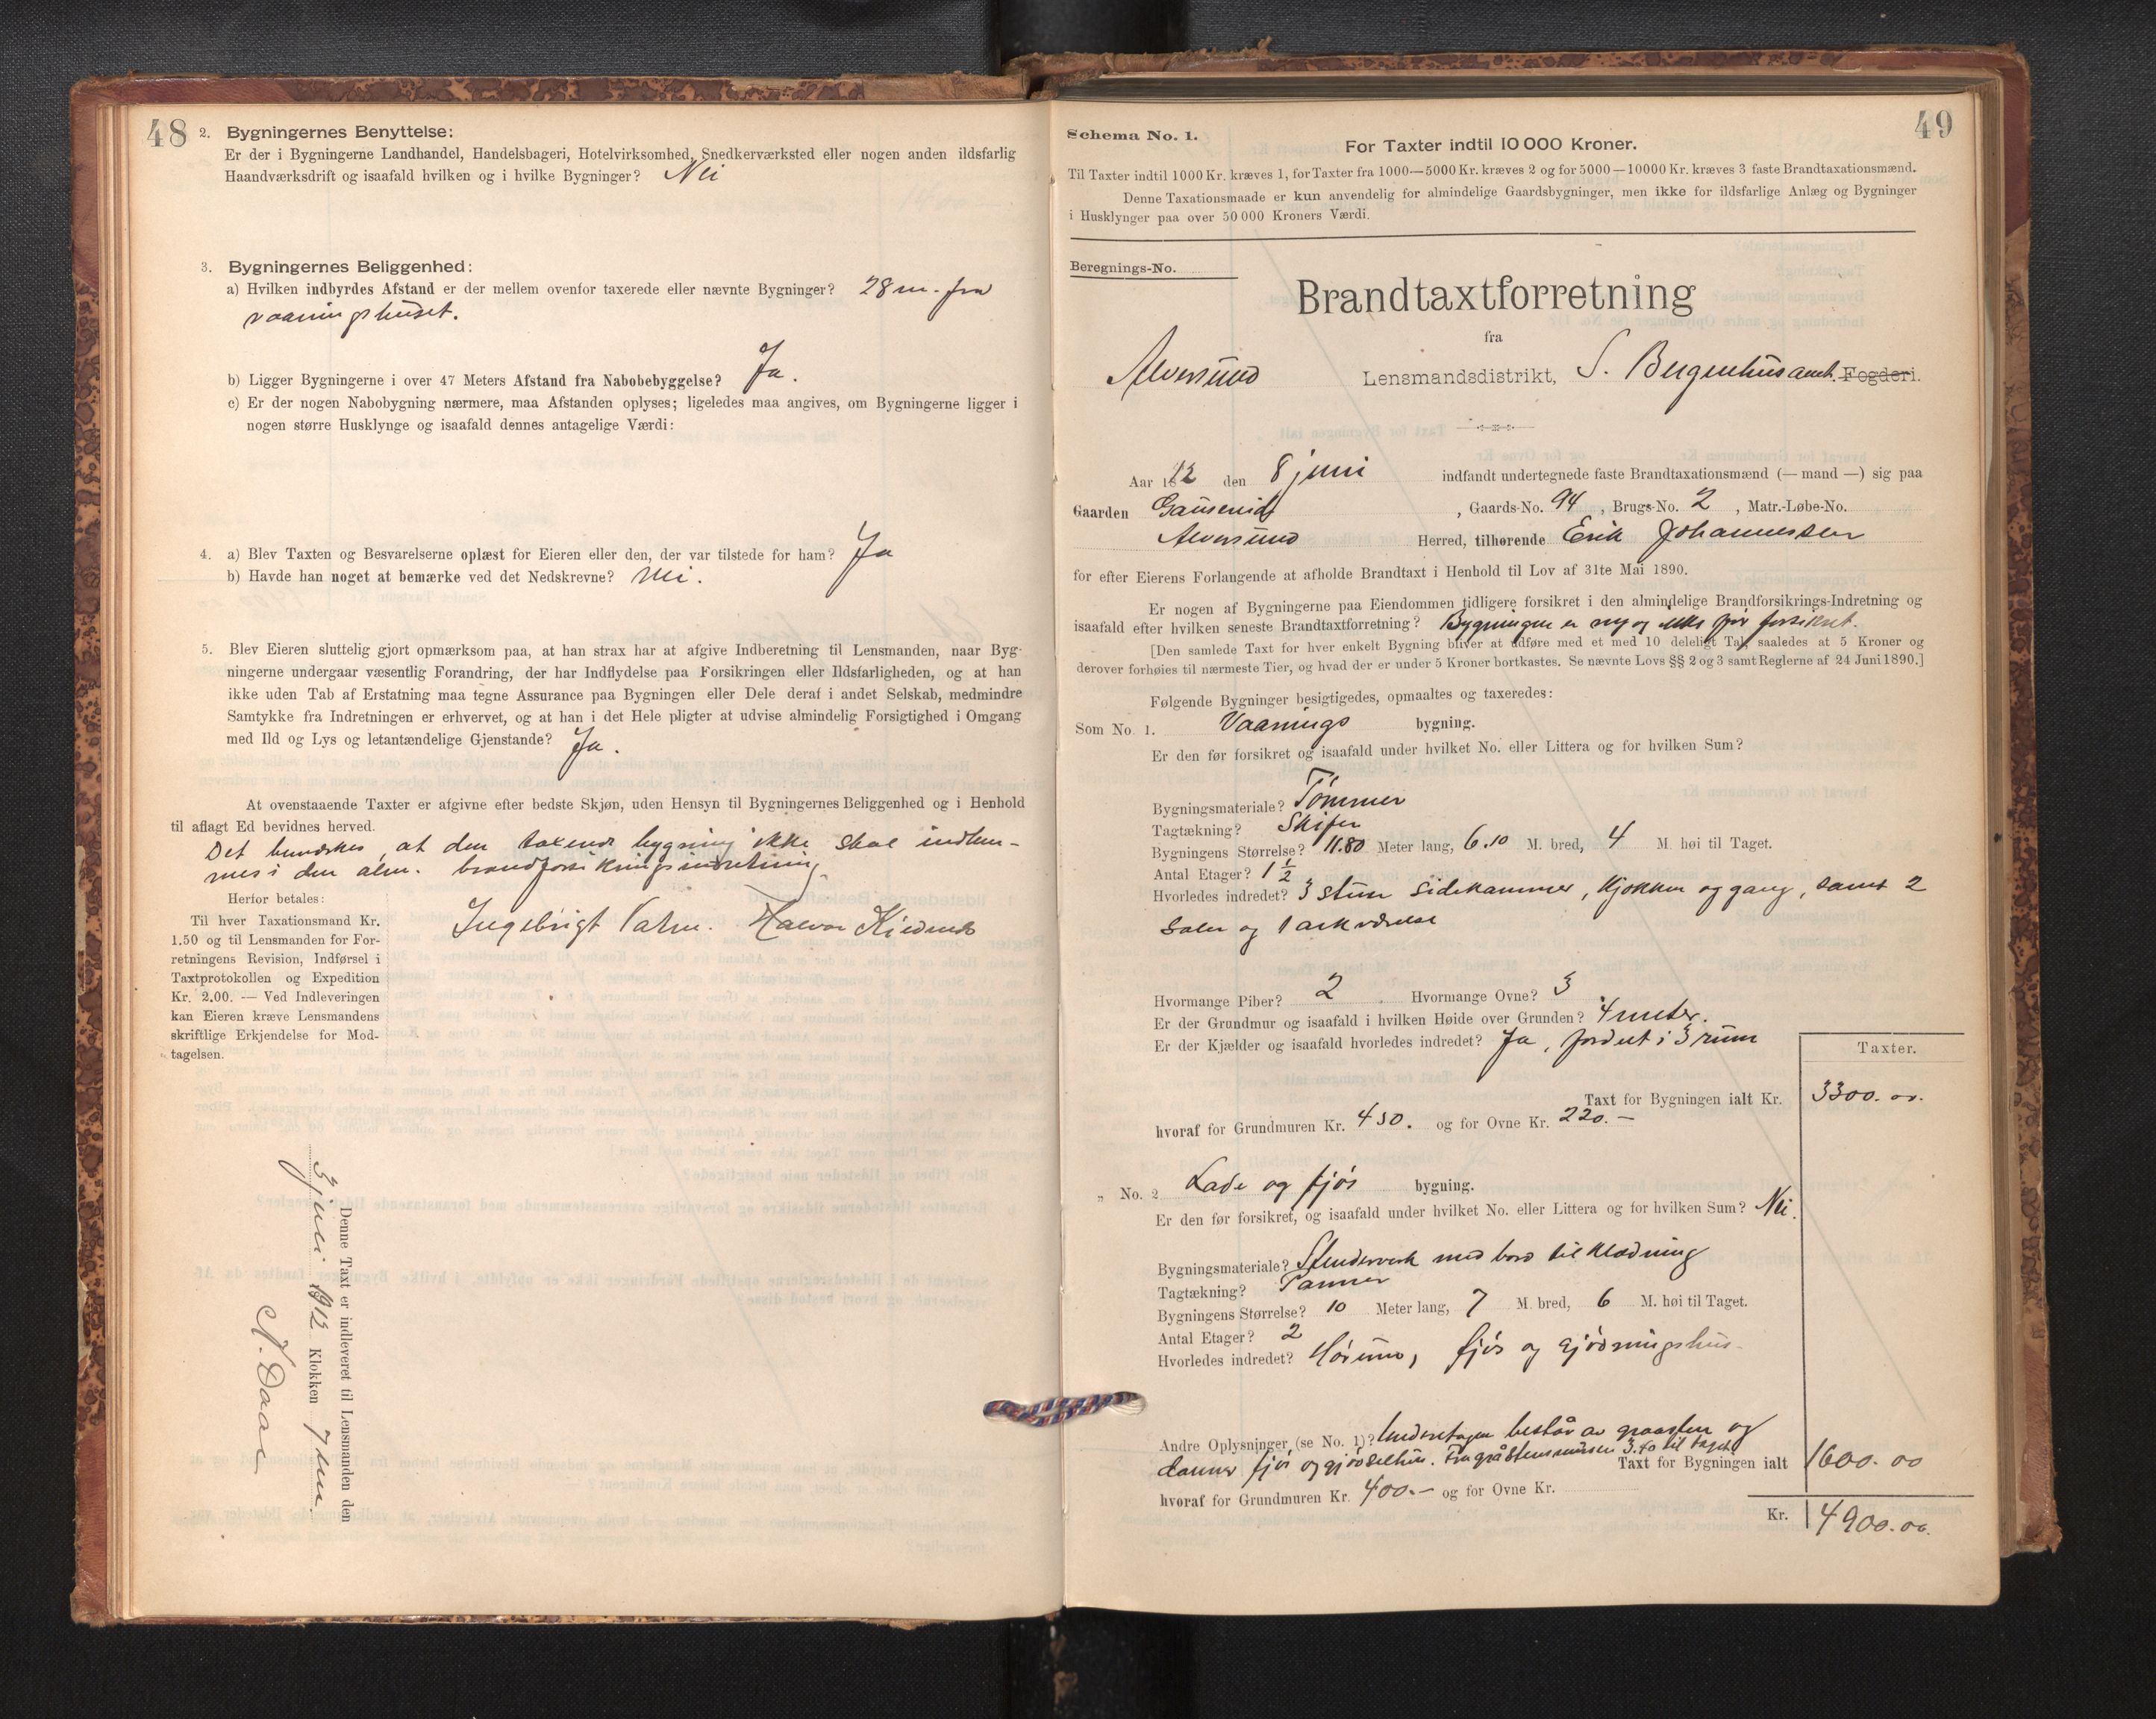 48
2. Bygningernes Benyttelse:
Er der i Bygningerne Landhandel, Handelsbageri, Hotelvirksomhed, Snedkerværksted eller nogen anden ildsfarlig
Haandværksdrift og isaafald hvilken og i hvilke Bygninger? Nei
3. Bygningernes Beliggenhed:
a) Hvilken indbyrdes Afstand er der mellem ovenfor taxerede eller nævnte Bygninger? 28 m. fra
vaaningshuset.
b) Ligger Bygningerne i over 47 Meters Afstand fra Nabobebyggelse? Ja.
c) Er der nogen Nabobygning nærmere, maa Afstanden oplyses; ligeledes maa angives, om Bygningerne ligger i
nogen større Husklynge og isaafald dennes antagelige Værdi:
4. a) Blev Taxten og Besvarelserne oplæst for Eieren eller den, der var tilstede for ham? Ja
b) Havde han noget at bemærke ved det Nedskrevne? Nei.
5. Blev Eieren sluttelig gjort opmærksom paa, at han strax har at afgive Indberetning til Lensmanden, naar Byg-
ningerne undergaar væsentlig Forandring, der har Indflydelse paa Forsikringen eller Ildsfarligheden, og at han
ikke uden Tab af Erstatning maa tegne Assurance paa Bygningen eller Dele deraf i andet Selskab, medmindre
Samtykke fra Indretningen er erhvervet, og at han i det Hele pligter at udvise almindelig Forsigtighed i Omgang
med Ild og Lys og letantændelige Gjenstande? Ja.
At ovenstaaende Taxter er afgivne efter bedste Skjøn, uden Hensyn til Bygningernes Beliggenhed og i Henhold
til aflagt Ed bevidnes herved.
Det bemerkes, at den takserte bygning ikke skal indlem-
mes i den alm. brandforsikringsindretning.
Ingebrigt Halvor
Herfor betales:
Til hver Taxationsmand Kr.
1.50 og til Lensmanden for For-
retningens Revision, Indførsel i
Taxtprotokollen og Expedition
Kr. 2.00. — Ved Indleveringen
kan Eieren kræve Lensmandens
skriftlige Erkjendelse for Mod-
tagelsen.
Denne Taxt er indleveret til Lensmanden den
3 juni 1912 Klokken 7 em.
N. Daae
49
Schema No. 1.
For Taxter indtil 10 000 Kroner.
Til Taxter indtil 1000 Kr. kræves 1, for Taxter fra 1000—5000 Kr. kræves 2 og for 5000—10000 Kr. kræves 3 faste Brandtaxationsmænd.
Denne Taxationsmaade er kun anvendelig for almindelige Gaardsbygninger, men ikke for ildsfarlige Anlæg og Bygninger
i Husklynger paa over 50 000 Kroners Værdi.
Beregnings-No.
Brandtaxtforretning
fra
Alversund Lensmandsdistrikt, S. Bergenhus amt. Fogderi.
Aar 1912 den 8 juni indfandt undertegnede faste Brandtaxationsmænd (— mand —) sig paa
Gaarden , Gaards-No. 94, Brugs-No. 2, Matr.-Løbe-No.
Alversund Herred, tilhørende Erik Johannessen
for efter Eierens Forlangende at afholde Brandtaxt i Henhold til Lov af 31te Mai 1890.
Er nogen af Bygningerne paa Eiendommen tidligere forsikret i den almindelige Brandforsikrings-Indretning og
isaafald efter hvilken seneste Brandtaxtforretning? Bygningen er ny og ikke før forsikret.
[Den samlede Taxt for hver enkelt Bygning bliver at udføre med et med 10 deleligt Tal, saaledes at 5 Kroner og
derover forhøies til nærmeste Tier, og hvad der er under 5 Kroner bortkastes. Se nævnte Lovs §§ 2 og 3 samt Reglerne af 24 Juni 1890.]
Følgende Bygninger besigtigedes, opmaaltes og taxeredes:
Som No. 1. Vaanings bygning.
Er den før forsikret og isaafald under hvilket No. eller Littera og for hvilken Sum?
Bygningsmateriale? Tømmer
Tagtækning? Skifer
Bygningens Størrelse? 11.80 Meter lang, 6.10 M. bred, 4 M. høi til Taget.
Antal Etager? 1 1/2
Hvorledes indredet? 3 stuer sidekammer, kjøkken og gang, samt 2
saler og 1 arkværelse
Hvormange Piber? 2 Hvormange Ovne? 3
Er der Grundmur og isaafald i hvilken Høide over Grunden? 4 meter.
Er der Kjælder og isaafald hvorledes indredet? Ja, fordelt i 3 rum
Taxter.
Taxt for Bygningen ialt Kr. 3300.00.
hvoraf for Grundmuren Kr. 450. og for Ovne Kr. 220.—
„ No. 2 Lade og fjøs bygning.
Er den før forsikret, og isaafald under hvilket No. eller Littera og for hvilken Sum? Nei.
Bygningsmateriale? Stenderverk med bord til klædning
Tagtækning? Panner
Bygningens Størrelse? 10 Meter lang, 7 M. bred, 6 M. høi til Taget.
Antal Etager? 2
Hvorledes indredet? Hørum, fjøs og gjødningshus.
Andre Oplysninger (se No. 1)? Underetagen består av graasten og
danner fjøs og gjødselhus. Fra gråstensmuren 3.40 til taget
Taxt for Bygningen ialt 1600.00
hvoraf for Grundmuren Kr. 400.— og for Ovne Kr.
Kr. 4900.00.